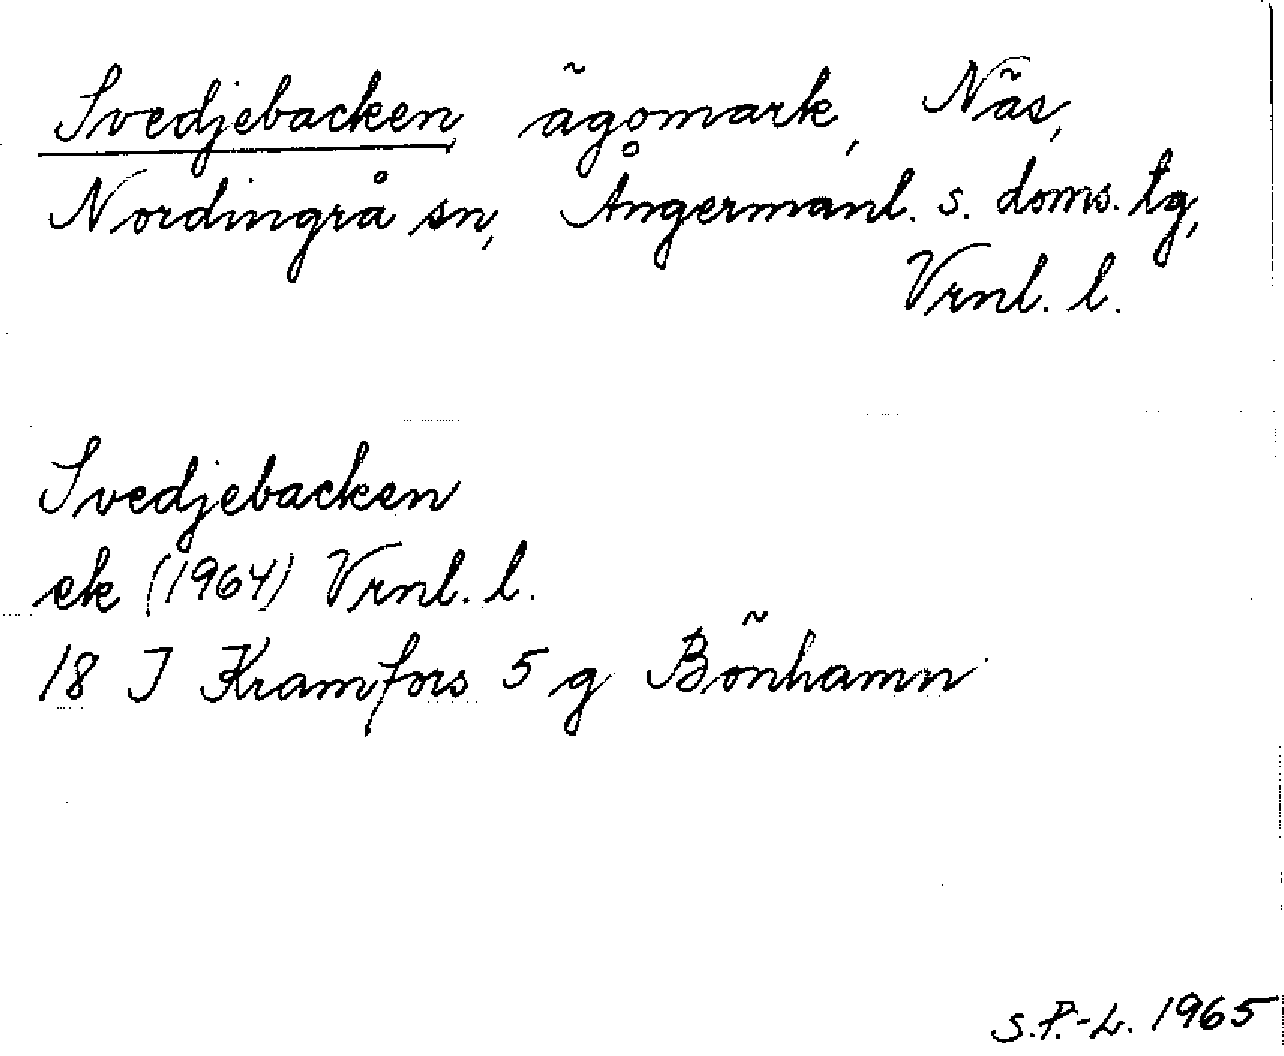 Svedjebacken, ägomark, Näs,
Nordingrå sn, Ångermanl. s. doms. tg,
Vrnl. l.
Svedjebacken
ek (1964) Vrnl. l.
18 I Kramfors 5 g Bönhamn
S.P.-L. 1965